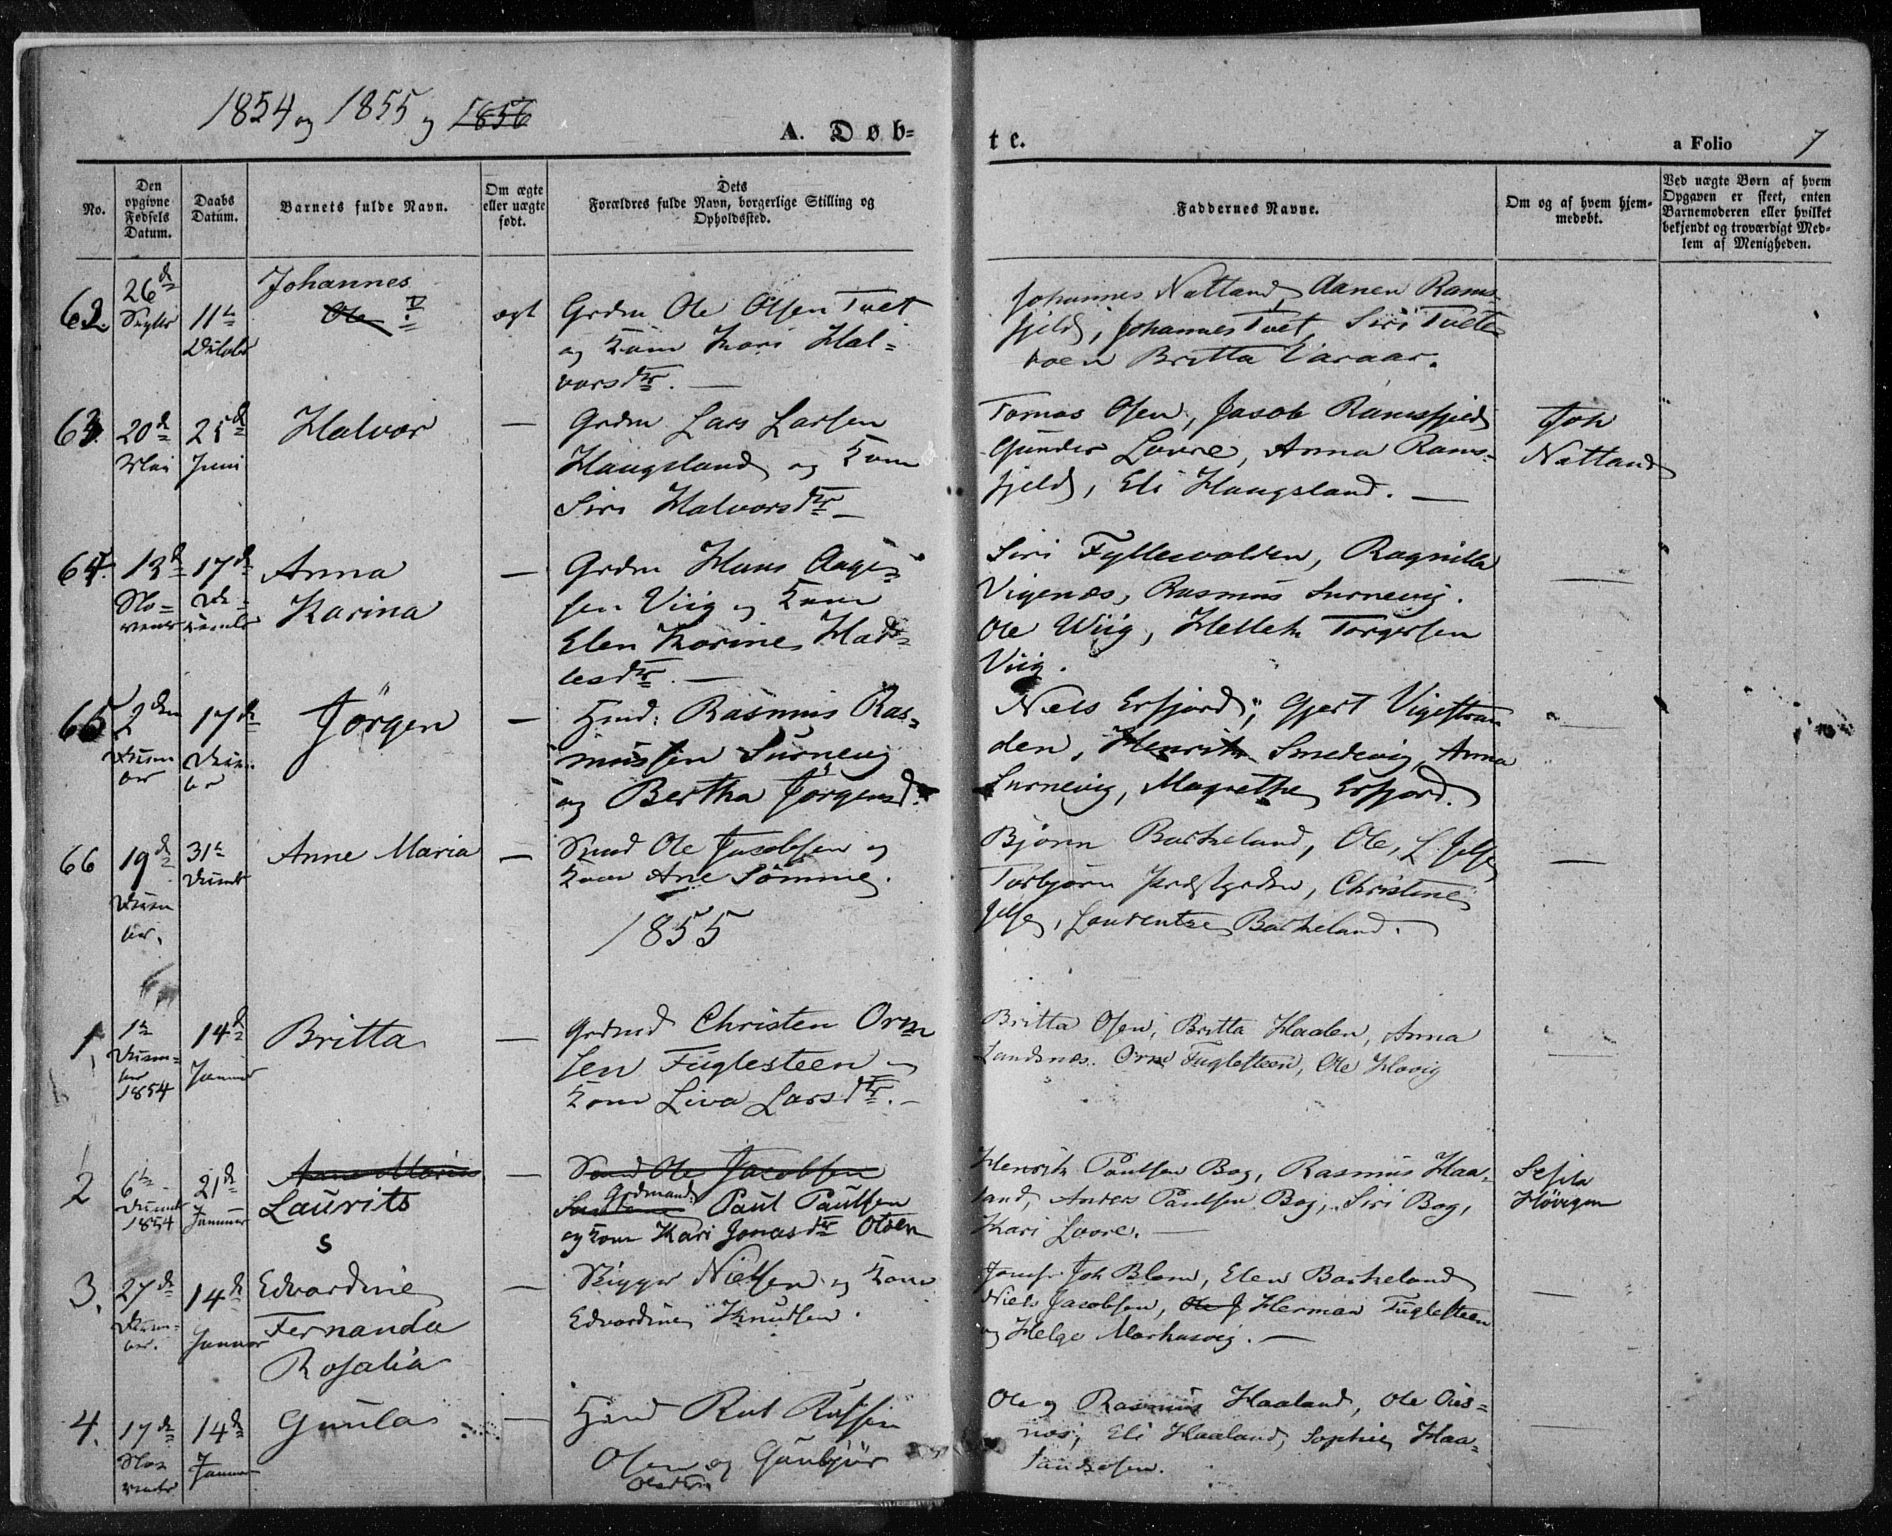 1854 og 1855 og 1856
A. Døb-
te.
a Folio 7
No.
Den
opgivne
Fødsels
Datum.
Daabs
Datum.
Barnets fulde Navn.
Om ægte
eller uægte
født.
Dets
Forældres fulde Navn, borgerlige Stilling og
Opholdssted.
Faddernes Navne.
Om og af hvem hjem-
medøbt.
Ved uægte Børn af hvem
Opgaven er skeet, enten
Barnemoderen eller hvilket
bekjendt og troværdigt Med-
lem af Menigheden.
62.
26de
Septbr
11te
Octobr
Johannes
Ole
ægt
Grdm Ole Olsen Tvet
og Kone Kari Hal-
vorsdtr. —
Johannes Natland, Aanen Rams-
fjeld, Johannes Tvet, Siri Tvete-
Britta Varaar.
63.
20de
Mai
25de
Juni
Halvor
—
Grdm Lars Larsen
Haugsland og Kone
Siri Halvorsdtr —
Tomas Osen, Jacob Ramsfjeld
Gunder Lovre, Anna Rams-
fjeld, Eli Haugsland. —
Joh
Natland
64.
13de
No-
vember
17de
De-
cembr
Anna
Karina
—
Grdm Hans Aage-
sen Viig og Kone
Elen Karine
dtr. —
Siri Ragnilla
Vigenæs, Rasmus Surnevig.
Ole Wiig, Torgersen
Viig.
—
65
2den
Decem
ber
17de
Decem
ber
Jörgen
—
Hmd: Rasmus Ras-
mussen Surnevig
og Bertha Jörgensd.
Niels Erfjord, Gjert Vigestran
den, Henrik Smedevig, Anna
Surnevig, Magrethe Erfjord.
—
66
19de
Decem
ber.
31te
Decembr
Anne Maria
—
Ole Jacobsen og
Kone Ane Sömme.
Bjørn Barkeland, Ole, L. Jelse
Torbjørn Christine
Jelse, Laurentze Barkeland.
—
1855
1.
1te
Decem-
ber
1854
14de
Januar
Britta
—
Grdmd Christen Orm
sen Fuglesteen og
Kone Liva Larsdtr. —
Britta Osen, Britta Haalen, Anna
Landsnes. Orm Fuglesteen, Ole Hovig
—
2
6te
Decembr
1854
21de
Januar
Anne Maria
Laurits
—
Ole Jacobsen
Grdmand:
Paul Paulsen
og Kone Kari Jonasdtr Olsen
Henrik Paulsen Bog, Rasmus Haa-
land, Anders Paulsen Bog, Siri Bog,
Kari Lovre. —
S
3.
27de
Decem-
ber.
14de
Januar
Edvardine
Fernanda
Rosalia
—
Nielsen og Kone
Edvardine Knudsen.
Joh Blom, Elen Barkeland
Niels Jacobsen, Ole J Herman Fuglesteen
og Helge Marhusvig. —
—
4.
17de
Nov
vember
14de
Januar
Gunla
—
Hmd Rut
Osen og Gunbjör
Olsdtr
Ole og Rasmus Haaland, Ole
Eli Haaland, Sophie Haa-
landsosen.
—